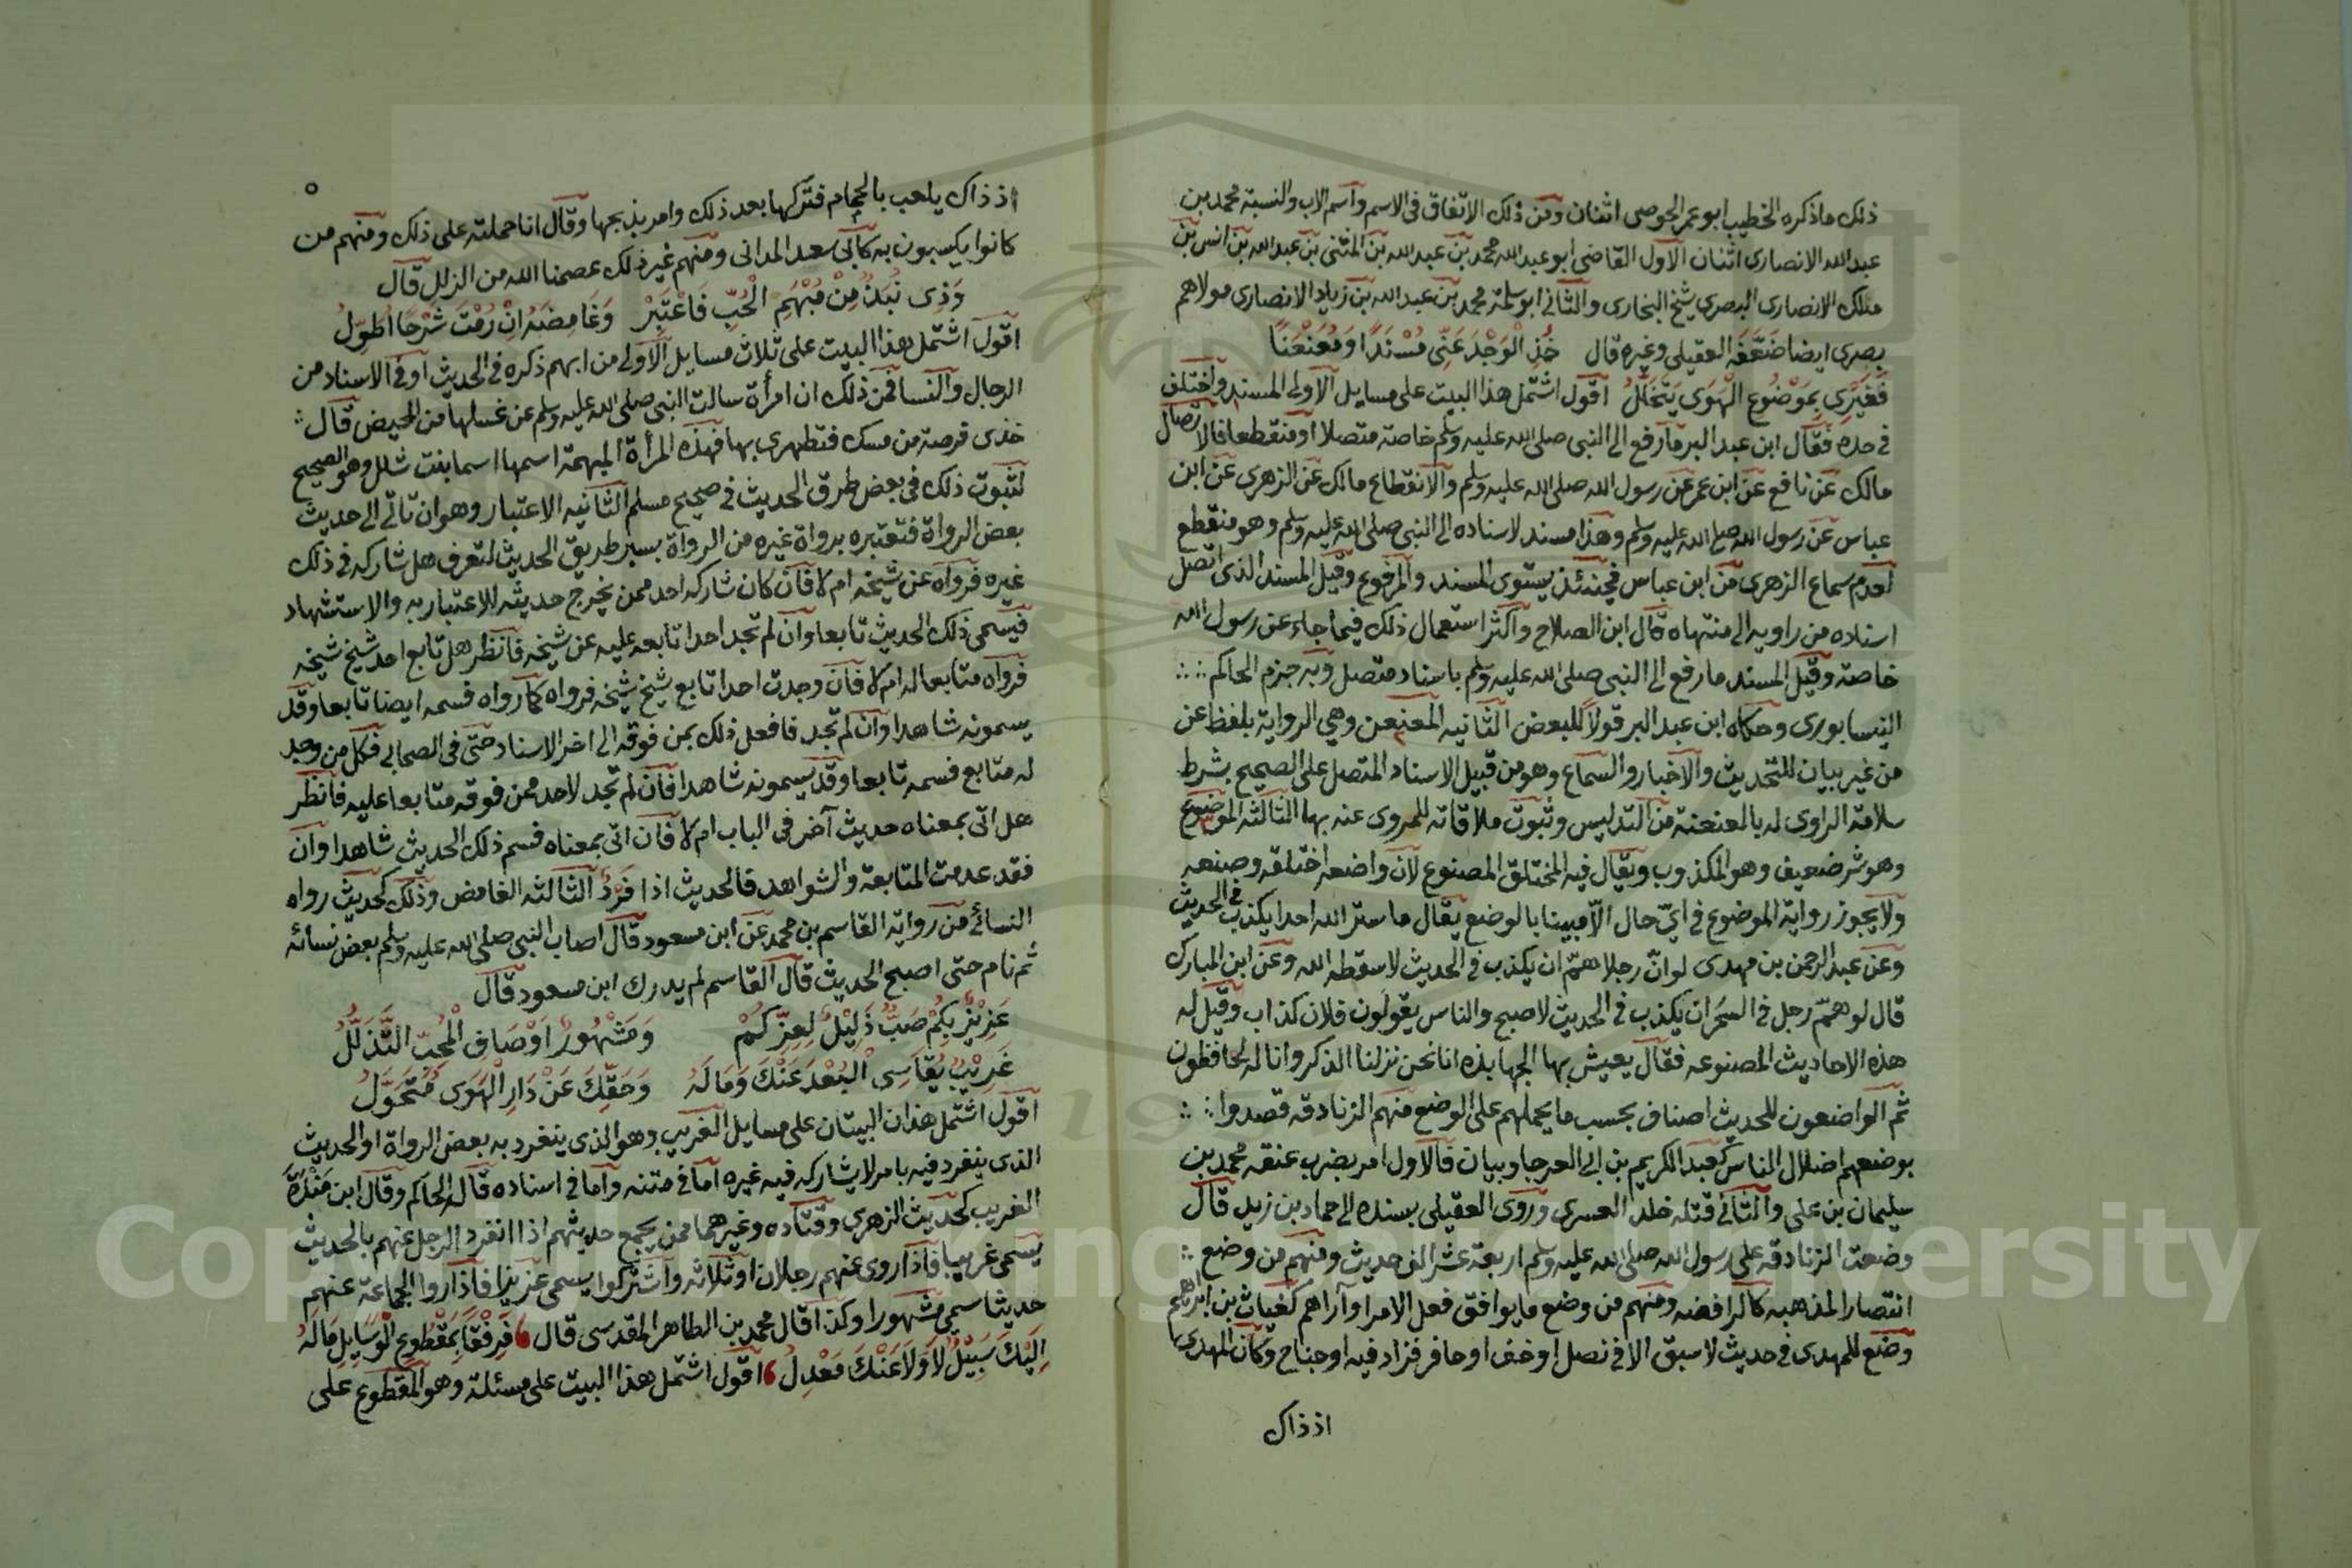 ذلك ماذكره الخطيب ابو عمر الحوصى اثنان ومن ذلك الاتفاق فى الاسم واسم الاب والنسبة محمد بن
عبد الله الانصارى اثنان الاول القاضى ابو عبد الله محمد بن عبد الله بن المثنى بن عبد الله بن انس بن
مالك الانصارى البصرى شيخ البخارى والثانى ابو سلمة محمد بن عبد الله بن زياد الانصارى مولاهم
بصرى ايضا ضعفه العقيلى وغيره قال خُذِ الْوَجْدَ عَنِّى مُسْنَدًا وَمُعَنْعَنًا
فَغَيْرِى بِمَوْضُوعِ الْهَوَى يَتَحَلَّلُ اقول اشتمل هذا البيت على مسايل الاولى المسند واختلف
فى حده فقال ابن عبد البر ما رفع الى النبى صلى الله عليه وسلم خاصة متصلا او منقطعا فالاتصال
مالك عن نافع عن ابن عمر عن رسول الله صلى الله عليه وسلم والانقطاع مالك عن الزهرى عن ابن
عباس عن رسول الله صلى الله عليه وسلم وهذا مسند لاسناده الى النبى صلى الله عليه وسلم وهو منقطع
لعدم سماع الزهرى من ابن عباس فحينئذ يستوى المسند والمرفوع وقيل المسند الذى اتصل
اسناده من راويه الى منتهاه قال ابن الصلاح واكثر استعمال ذلك فيما جاء عن رسول الله
خاصة وقيل المسند ما رفع الى النبى صلى الله عليه وسلم باسناد متصل وبه جزم الحاكم
النيسابورى وحكاه ابن عبد البر قولا للبعض الثانيه المعنعن وهى الرواية بلفظ عن
من غير بيان للتحديث والاخبار والسماع وهو من قبيل الاسناد المتصل على الصحيح بشرط
سلامة الراوى له بالعنعنة من التدليس وثبوت ملاقاته للمروى عنه بها الثالثه الموضوع
وهو شر ضعيف وهو المكذوب ويقال فيه المختلق المصنوع لان واضعه اختلقه وصنعه
ولا يجوز رواية الموضوع فى اىّ حال الّا مبينا بالوضع يقال ما ستر الله احدا يكذب فى الحديث
وعن عبد الرحمن بن مهدى لو انّ رجلا همّ ان يكذب فى الحديث لاسقطه الله وعن ابن المبارك
قال لو همّ رجل فى السَحَر ان يكذب فى الحديث لاصبح والناس يقولون فلان كذاب وقيل له
هذه الاحاديث المصنوعه فقال يعيش بها الجهابذه انا نحن نزلنا الذكر وانا له لحافظون
ثم الواضعون للحديث اصناف بحسب ما يحملهم على الوضع منهم الزنادقه قصدوا
بوضعهم اضلال الناس كعبد الكريم بن ابى العوجا وبيان فالاول امر بضرب عنقه محمد بن
سليمان بن على والثانى قتله خلد العسرى وروى العقيلى بسنده الى حماد بن زيد قال
وضعت الزنادقه على رسول الله صلى الله عليه وسلم اربعة عشر الف حديث ومنهم من وضع
انتصارا لمذهبه كالرافضه ومنهم من وضع ما يوافق فعل الامرا وآراهم كغياث بن ابرهيم
وضع للمهدى فى حديث لا سبق الا فى نصل او خف او حافر فزاد فيه او جناح وكان المهدى
اذ ذاك
٥
اذ ذاك يلعب بالحمام فتركها بعد ذلك وامر بذبحها وقال انا حملته على ذلك ومنهم من
كانوا يكسبون به كابى سعد المدانى ومنهم غير ذلك عصمنا الله من الزلل قال
وَذِى نُبَذٌ مِنْ مُبْهَمِ الْحُبِّ فَاعْتَبِرْ وَغَامِضَهُ اِنْ رُمْتَ شَرْحًا اُطَوِّلُ
اقول اشتمل هذا البيت على ثلاث مسايل الاولى من ابهم ذكره فى الحديث او فى الاسناد من
الرجال والنسا فمن ذلك ان امرأة سالت النبى صلى الله عليه وسلم عن غسلها من الحيض قال
خذى فرصة من مسك فتطهرى بها فهذه المرأة المبهمة اسمها اسما بنت شلل وهو الصحيح
لثبوت ذلك فى بعض طرق الحديث فى صحيح مسلم الثانيه الاعتبار وهو ان تاتى الى حديث
بعض الرواة فتعتبره برواة غيره من الرواة بسبر طريق الحديث لتعرف هل شاركه فى ذلك
غيره فرواه عن شيخه ام لا فان كان شاركه احد ممن يخرج حديثه للاعتبار به والاستشهاد
فيسمى ذلك الحديث تابعا وان لم تجد احدا تابعه عليه عن شيخه فانظر هل تابع احد شيخ شيخه
فرواه متابعا له ام لا فان وجدت احدا تابع شيخ شيخه فرواه كما رواه فسمه ايضا تابعا وقد
يسمونه شاهدا وان لم تجد فافعل ذلك بمن فوقه الى اخر الاسناد حتى فى الصحابى فكل من وجد
له متابع فسمه تابعا وقد يسمونه شاهدا فان لم تجد لاحد ممن فوقه متابعا عليه فانظر
هل اتى بمعناه حديث آخر فى الباب ام لا فان اتى بمعناه فسم ذلك الحديث شاهدا وان
فقد عدمت المتابعة والشواهد فالحديث اذا فَرْدٌ الثالثه الغامض وذلك كحديث رواه
النسائى من رواية القاسم بن محمد عن ابن مسعود قال اصاب النبى صلى الله عليه وسلم بعض نسائه
ثم نام حتى اصبح الحديث قال القاسم لم يدرك ابن مسعود قال
عَزِيْزٌ بِكُمْ صَبٌّ ذَلِيْلٌ لِعِزِّكُمْ وَمَشْهُورُ اَوْصَافِ الْمُحِبِّ التَّذَلُّلُ
غَرِيْبٌ يُقَاسِى الْبُعْدَ عَنْكَ وَمَا لَهُ وَحَقِّكَ عَنْ دَارِ الْهَوَى مُتَحَوَّلُ
اقول اشتمل هذان البيتان على مسايل الغريب وهو الذى ينفرد به بعض الرواة او الحديث
الذى ينفرد فيه بامر لا يشاركه فيه غيره اما فى متنه واما فى اسناده قاله الحاكم وقال ابن مَنْدَهْ
الغريب كحديث الزهرى وقتاده وغيرهما ممن يجمع حديثهم اذا انفرد الرجل عنهم بالحديث
يسمى غريبا فاذا روى عنهم رجلان او ثلاثه واشتركوا يسمى عزيزا فاذا روا الجماعة عنهم
حديثا سمى مشهورا وكذا قال محمد بن الطاهر المقدسى قال فَرِفْقًا بِمَقْطُوعِ الْوَسَايِلِ مَالَهُ
اِلَيْكَ سَبِيْلٌ لَا وَلَا عَنْكَ مَعْدِلُ اقول اشتمل هذا البيت على مسئلة وهو المقطوع على
Copyright © King Saud University